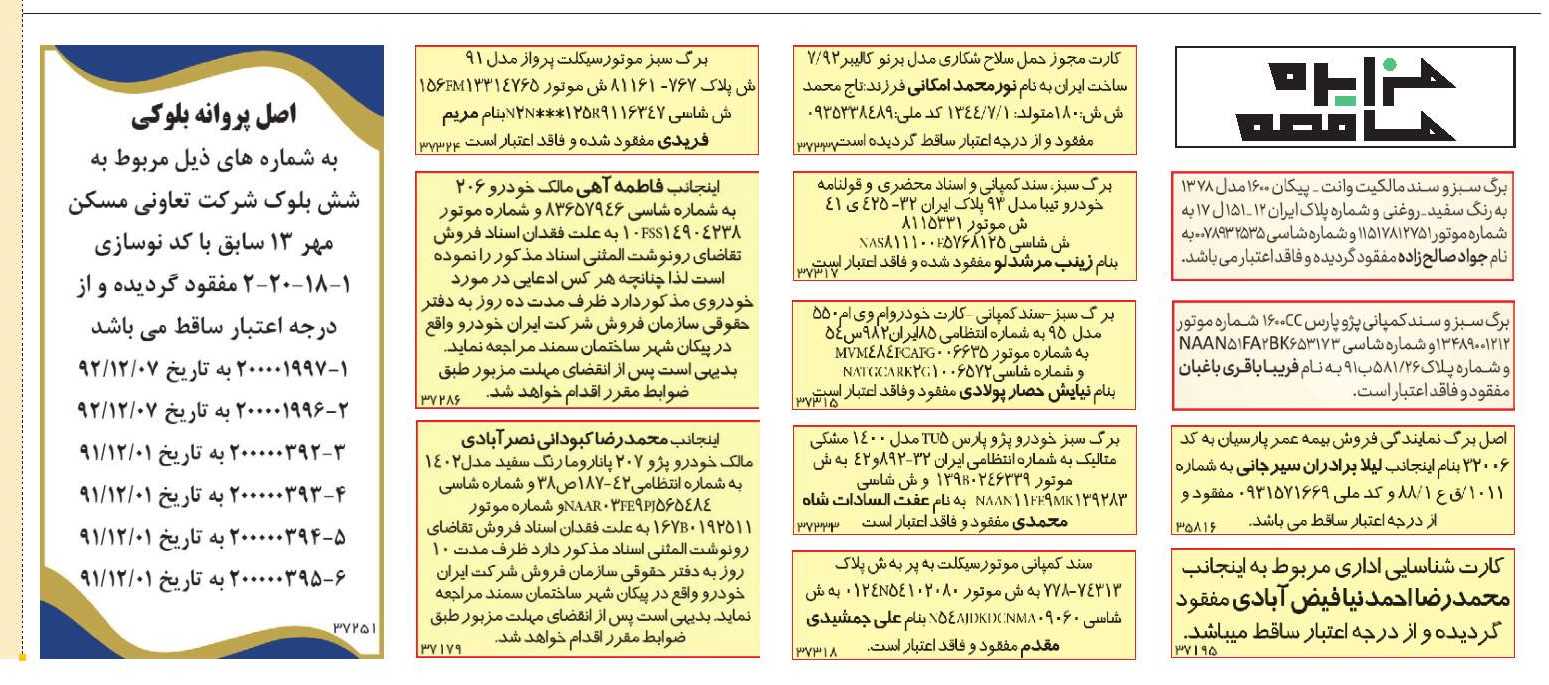 مزایده
مناقصه
برگ سبز و سند مالکیت وانت - پیکان ۱۶۰۰ مدل ۱۳۷۸
به رنگ سفید-روغنی و شماره پلاک ایران ۱۲-۱۵۱ل۱۷ به
شماره موتور ۱۱۵۱۷۸۱۲۷۵۱ و شماره شاسی ۰۰۷۸۹۳۲۵۳۵ به
نام جواد صالح زاده مفقود گردیده و فاقد اعتبار می باشد.
برگ سبز و سند کمپانی پژو پارس ۱۶۰۰CC شماره موتور
۱۳۴۸۹۰۰۱۲۱۲ و شماره شاسی NAAN۵۱FA۲BK۶۵۳۱۷۳
و شماره پلاک ۵۸۱/۲۶ب۹۱ به نام فریبا باقری باغبان
مفقود و فاقد اعتبار است.
اصل برگ نمایندگی فروش بیمه عمر پارسیان به کد
۲۲۰۰۶ بنام اینجانب لیلا برادران سیرجانی به شماره
۱۰۱۱/ق ع ۸۸/۱ و کد ملی ۰۹۳۱۵۷۱۶۶۹ مفقود و
از درجه اعتبار ساقط می باشد.
۳۵۸۱۶
کارت شناسایی اداری مربوط به اینجانب
محمدرضا احمدنیا فیض آبادی مفقود
گردیده و از درجه اعتبار ساقط میباشد.
۳۷۱۹۵
کارت مجوز حمل سلاح شکاری مدل برنو کالیبر ۷/۹۲
ساخت ایران به نام نورمحمد امکانی فرزند:تاج محمد
ش ش:۱۸۰ متولد: ۱۳۴۴/۷/۱ کد ملی:۰۹۳۵۳۳۸۴۸۹
مفقود و از درجه اعتبار ساقط گردیده است
۳۷۳۳۷
برگ سبز، سند کمپانی و اسناد محضری و قولنامه
خودرو تیبا مدل ۹۳ پلاک ایران ۳۲- ۴۲۵ ی ۴۱
ش موتور ۸۱۱۵۳۳۱
ش شاسی NAS۸۱۱۱۰۰E۵۷۶۸۱۲۵
بنام زینب مرشدلو مفقود شده و فاقد اعتبار است
۳۷۳۱۷
برگ سبز-سند کمپانی -کارت خودروام وی ام۵۵۰
مدل ۹۵ به شماره انتظامی ۸۵ایران۹۸۲س۵۴
به شماره موتور MVM۴۸۴FCAFG۰۰۶۶۳۵
و شماره شاسی NATGCARK۲G۱۰۰۶۵۷۲
بنام نیایش حصار پولادی مفقود وفاقد اعتبار است
۳۷۳۱۵
برگ سبز خودرو پژو پارس TU۵ مدل ۱۴۰۰ مشکی
متالیک به شماره انتظامی ایران ۳۲-۸۹۲و۴۲ به ش
موتور ۱۳۹B۰۲۴۶۳۳۹ و ش شاسی
NAAN۱۱FE۹MK۱۳۹۲۸۳ به نام عفت السادات شاه
محمدی مفقود و فاقد اعتبار است
۳۷۳۳۳
سند کمپانی موتورسیکلت به پر به ش پلاک
۷۷۸-۷۴۳۱۳ به ش موتور ۰۱۲۴N۵۴۱۰۲۰۸۰ به ش
شاسی N۵۴AJDKDCNMA۰۹۰۶۰ بنام علی جمشیدی
مقدم مفقود و فاقد اعتبار است.
۳۷۳۱۸
برگ سبز موتورسیکلت پرواز مدل ۹۱
ش پلاک ۷۶۷- ۸۱۱۶۱ ش موتور ۱۵۶FM۱۳۳۱۴۷۶۵
ش شاسی N۲N***۱۲۵R۹۱۱۶۳۴۷بنام مریم
فریدی مفقود شده و فاقد اعتبار است
۳۷۳۲۴
اینجانب فاطمه آهی مالک خودرو ۲۰۶
به شماره شاسی ۸۳۶۵۷۹۴۶ و شماره موتور
۱۰FSS۱۴۹۰۴۲۳۸ به علت فقدان اسناد فروش
تقاضای رونوشت المثنی اسناد مذکور را نموده
است لذا چنانچه هر کس ادعایی در مورد
خودروی مذکوردارد ظرف مدت ده روز به دفتر
حقوقی سازمان فروش شرکت ایران خودرو واقع
در پیکان شهر ساختمان سمند مراجعه نماید.
بدیهی است پس از انقضای مهلت مزبور طبق
ضوابط مقرر اقدام خواهد شد.
۳۷۲۸۶
اینجانب محمدرضا کبودانی نصرآبادی
مالک خودرو پژو ۲۰۷ پاناروما رنگ سفید مدل۱۴۰۲
به شماره انتظامی۴۲-۱۸۷ص۳۸ و شماره شاسی
NAAR۰۳FE۹PJ۵۶۵۴۸۴و شماره موتور
۱۶۷B۰۱۹۲۵۱۱ به علت فقدان اسناد فروش تقاضای
رونوشت المثنی اسناد مذکور دارد ظرف مدت ۱۰
روز به دفتر حقوقی سازمان فروش شرکت ایران
خودرو واقع در پیکان شهر ساختمان سمند مراجعه
نماید. بدیهی است پس از انقضای مهلت مزبور طبق
ضوابط مقرر اقدام خواهد شد.
۳۷۱۷۹
اصل پروانه بلوکی
به شماره های ذیل مربوط به
شش بلوک شرکت تعاونی مسکن
مهر ۱۳ سابق با کد نوسازی
۲-۲۰-۱۸-۱ مفقود گردیده و از
درجه اعتبار ساقط می باشد
۱-۲۰۰۰۰۱۹۹۷ به تاریخ ۹۲/۱۲/۰۷
۲-۲۰۰۰۰۱۹۹۶ به تاریخ ۹۲/۱۲/۰۷
۳-۲۰۰۰۰۰۳۹۲ به تاریخ ۹۱/۱۲/۰۱
۴-۲۰۰۰۰۰۳۹۳ به تاریخ ۹۱/۱۲/۰۱
۵-۲۰۰۰۰۰۳۹۴ به تاریخ ۹۱/۱۲/۰۱
۶-۲۰۰۰۰۰۳۹۵ به تاریخ ۹۱/۱۲/۰۱
۳۷۲۵۱